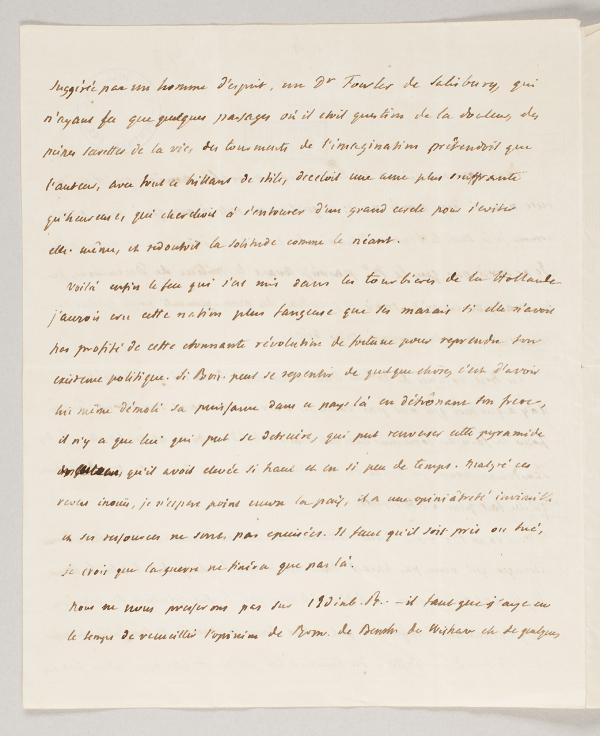 suggérée par un homme d'esprit, un Dr Fowler de Salisbury, qui
n'ayant lu que quelques passages où il etoit question de la douleur, des
peines secrettes de la vie, des tourments de l'imagination prétendoit que
l'auteur, avec tout ce brillant de stile, deceloit une ame plus souffrante
qu'heureuse, qui cherchoit à s'entourer d'un grand cercle pour s'eviter
elle-même, et redoutoit la solitude comme le néant.
Voilà enfin le feu qui s'est mis dans les tourbieres de la Hollande
j'aurois cru cette nation plus fangeuse que ses marais si elle n'avoit
pas profité de cette etonnante révolution de fortune pour reprendre son
existence politique. Si Buon. peut se repentir de quelque chose, c'est d'avoir
lui même démoli sa puissance dans ce pays là en détrônant son frere,
il n'y a que lui qui put se detruire, qui put renverser cette pyramide
qu'il avoit elevée si haut et en si peu de temps. Malgré ces
revers inouis, je n'espere point encore la paix, il a une opiniâtreté invincible
et ses ressources ne sont pas epuisées. Il faut qu'il soit pris ou tué,
je crois que la guerre ne finira que par là.
Nous ne nous presserons pas sur – il faut que j'aye eu
le temps de recueillir l'opinion de Rom. de de Wishaw et de quelques